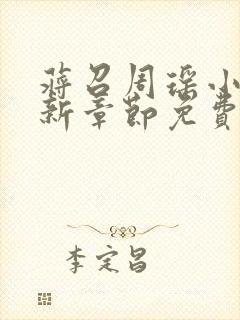 蒋召周瑶小
新章节免费
李定昌